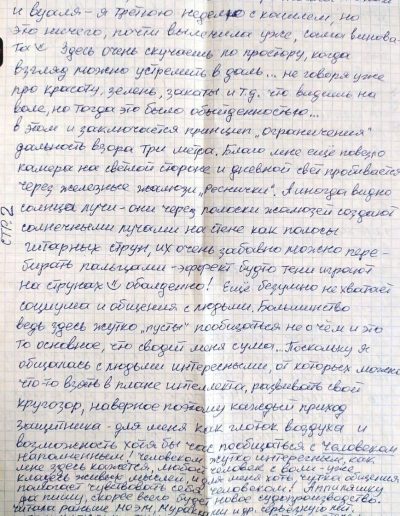 и вуаля - я третью неделю с кашлем, но
это ничего, почти вылечила уже, сама винова-
та☺ Здесь очень скучаешь по простору, когда
взгляд можно устремить в даль... не говоря уже
про красоту, зелень, закаты и т.д. что видишь на
воле, но тогда это было обыденностью...
в этом и заключается принцип „ограничения"
дальность взора три метра. Благо мне ещё повезло
камера на светлой стороне и дневной свет пробивается
через железные жалюзи „реснички". А иногда видно
солнца лучи - они через полоски жалюзей создают
солнечными лучами на стене как полосы
гитарных струн, их очень забавно можно пере-
бирать пальцами - эффект будто тени играют
на струнах☺ обалденно! Ещё безумно не хватает
социума и общения с людьми. Большинство
ведь здесь жутко „пусты" пообщаться не о чем и это
то основное, что сводит меня с ума... Поскольку я
общалась с людьми интересными, от которых можно
что-то взять в плане интеллекта, развивать свой
кругозор, наверное поэтому каждый приход
защитника - для меня как глоток воздуха и
возможность хотя бы час пообщаться с человеком
наполненным! Человеком жутко интересным, как
мне здесь кажется, любой человек с воли - уже
кладезь живых мыслей, и для меня хоть, чутка общения
помогает чувствовать себя человеком!
да пишу, скорее всего будет новое судопроизводство.
читала раньше по эм, Мураками и др. серьёзную лит.
СТР. 2